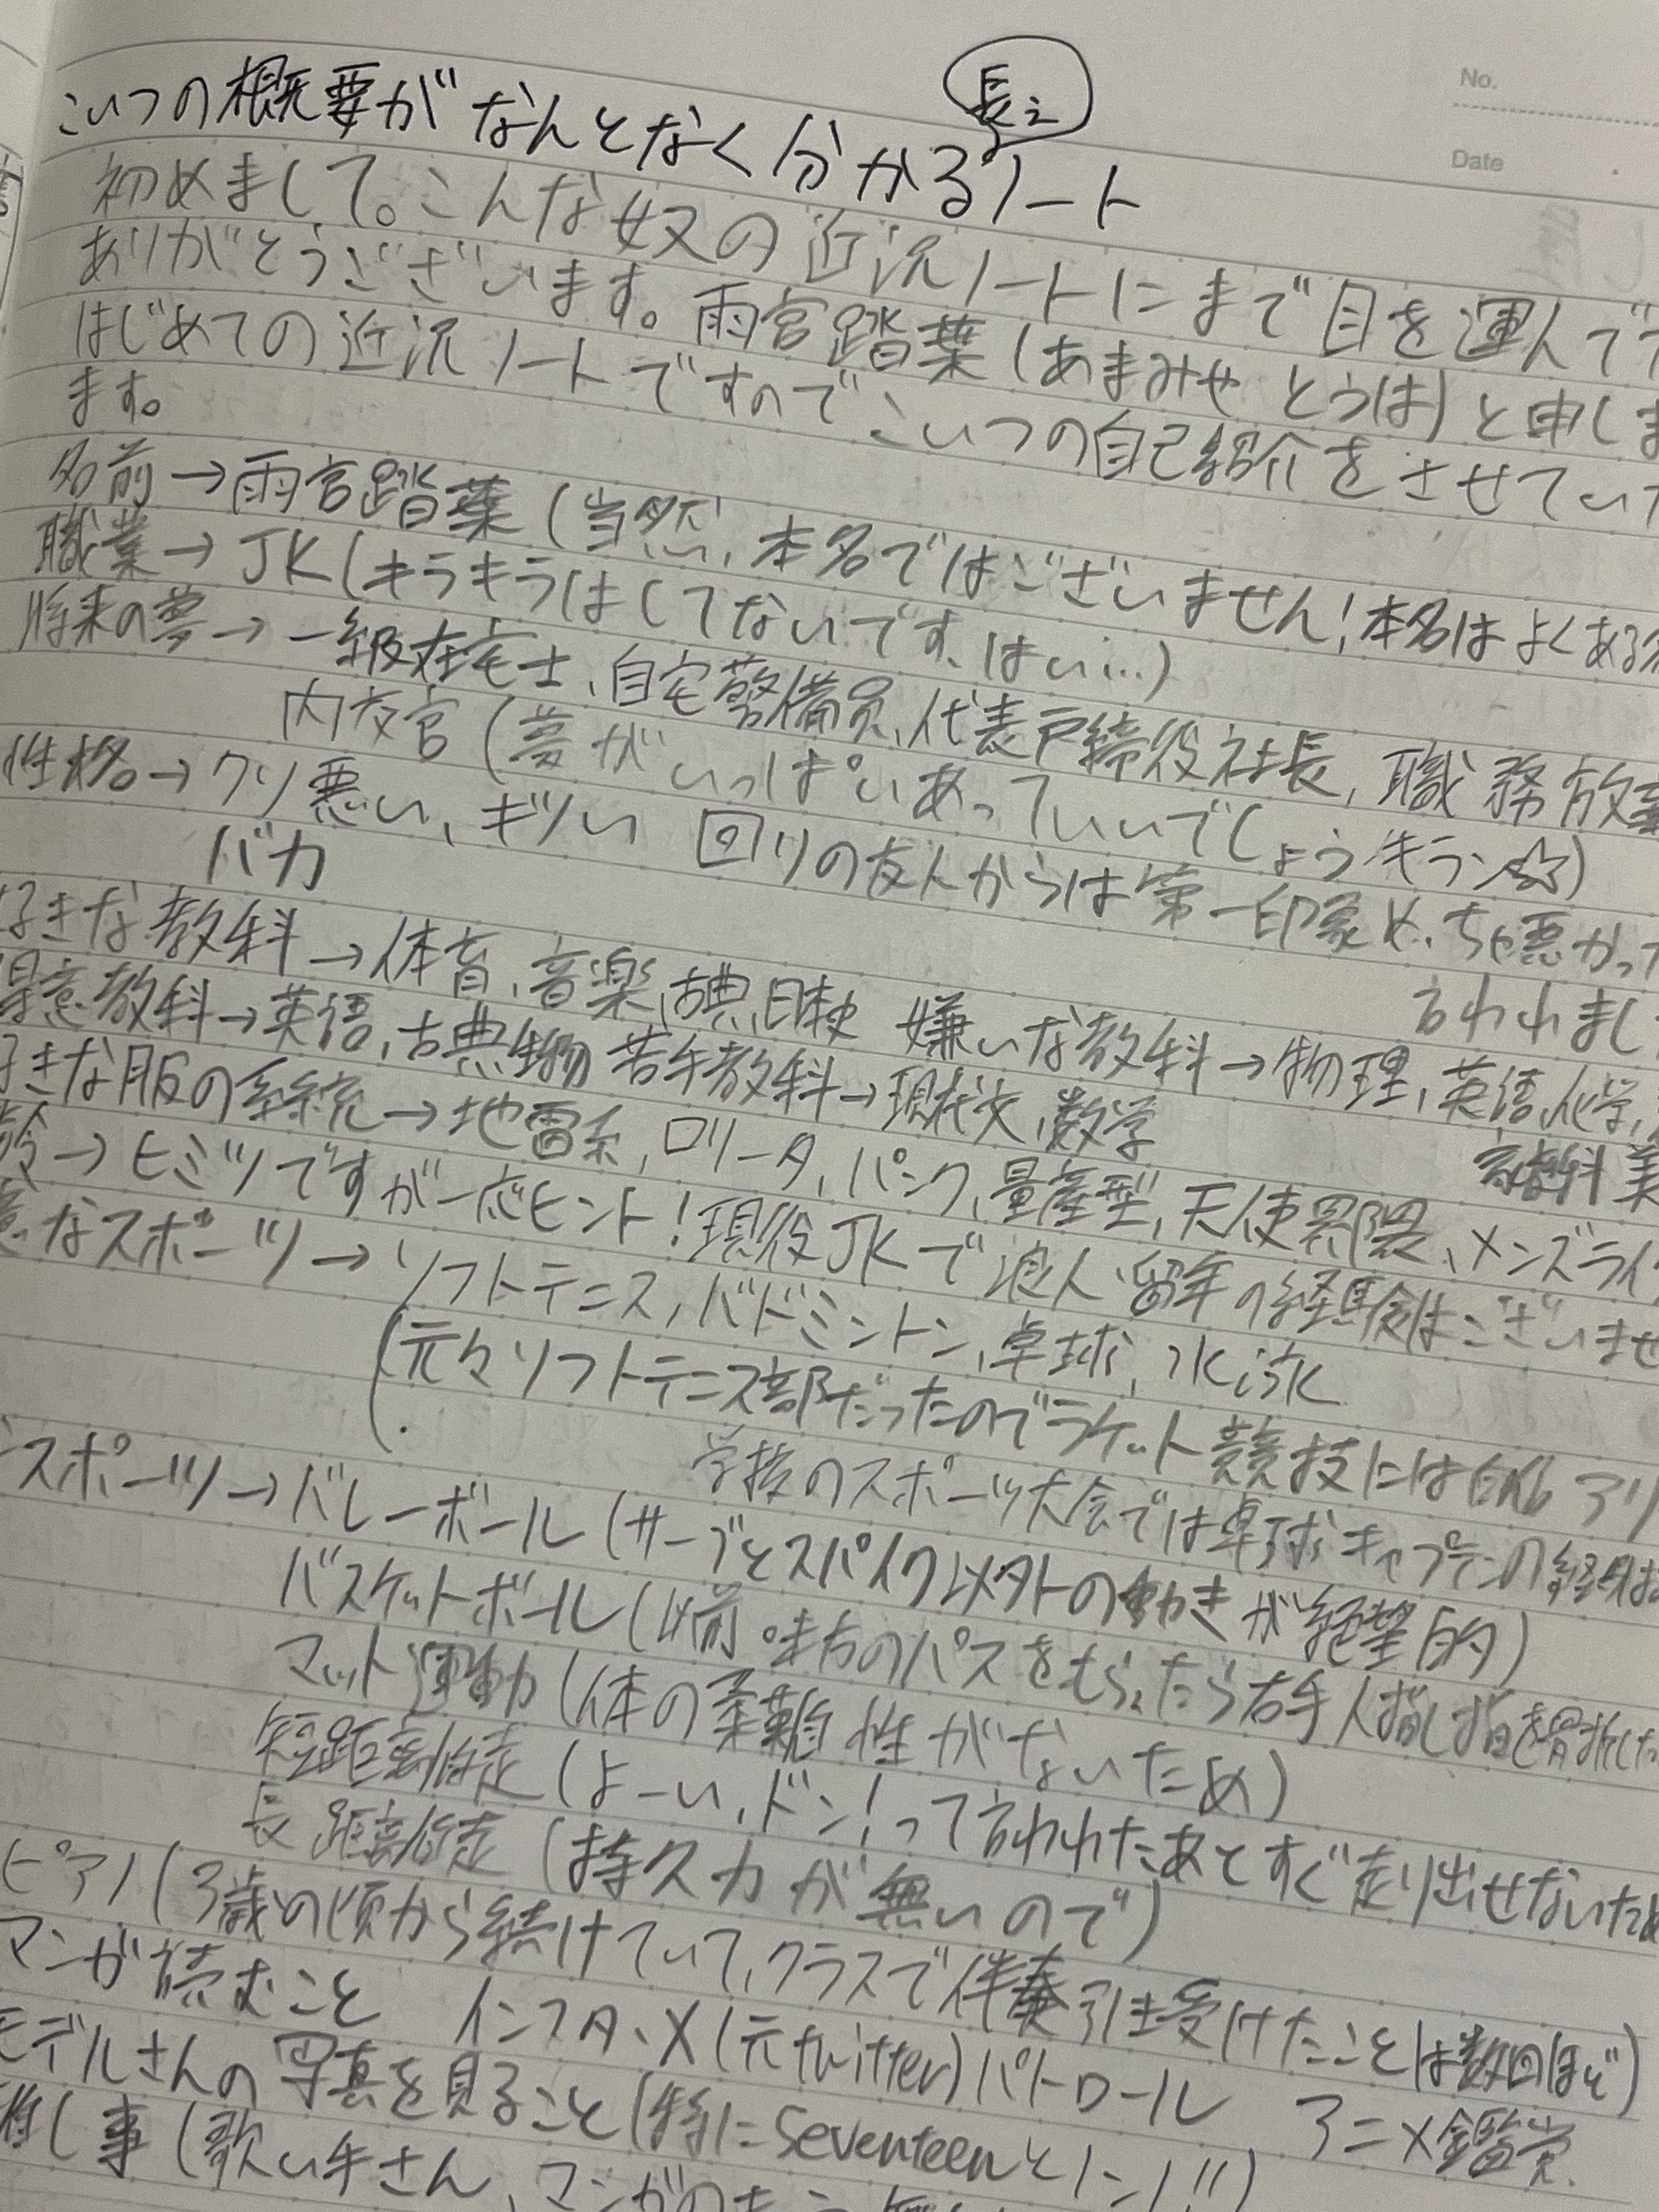 No.
Date
長え
こいつの概要がなんとなく分かるノート
初めまして。こんな奴の近況ノートにまで目を運んで
ありがとうございます。雨宮踏葉(あまみや とうは)と申しま
はじめての近況ノートですのでこいつの自己紹介をさせていた
ます。
名前→雨宮踏葉(当然、本名ではございません!本名はよくある
職業→JK(キラキラはしてないです、はい…)
将来の夢→一級在宅士、自宅警備員、代表戸締役社長、職務放棄
内夜官(夢がいっぱいあっていいでしょうキラン☆)
性格→クソ悪い、キツい 回りの友人からは第一印象めっちゃ悪かった
バカ 言われまし
好きな教科→体育、音楽、古典、日本史 嫌いな教科→物理、英語、化学、
得意教科→英語、古典、生物 苦手教科→現代文、数学 家庭科 美
好きな服の系統→地雷系、ロリータ、パンク、量産型、天使界隈、メンズライ
齢→ヒミツですが一応ヒント!現役JKで浪人・留年の経験はございませ
意なスポーツ→ソフトテニス、バドミントン、卓球、水泳
(元々ソフトテニス部だったのでラケット競技には自信アリ
学校のスポーツ大会では卓球キャプテンの経験は
スポーツ→バレーボール(サーブとスパイク以外の動きが絶望的)
バスケットボール(以前味方のパスをもらったら右手人指し指を骨折した
マット運動(体の柔軟性がないため)
短距離走(よーい、ドン!って言われたあとすぐ走り出せないため
長距離走(持久力が無いので)
ピアノ(3歳の頃から続けていて、クラスで伴奏引き受けたことは数回ほど)
マンガ読むこと インスタ、X(元twitter)パトロール アニメ鑑賞
モデルさんの写真を見ること(特にSeventeenとノンノ!!)
推し事(歌い手さん、マンガの